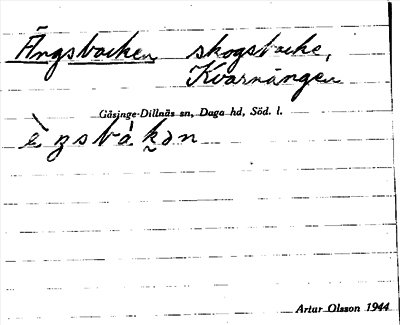 Ängsbacken skogsbacke,
Kvarnängen
Gåsinge-Dillnäs sn, Daga hd, Söd. l.
Artur Olsson 1944